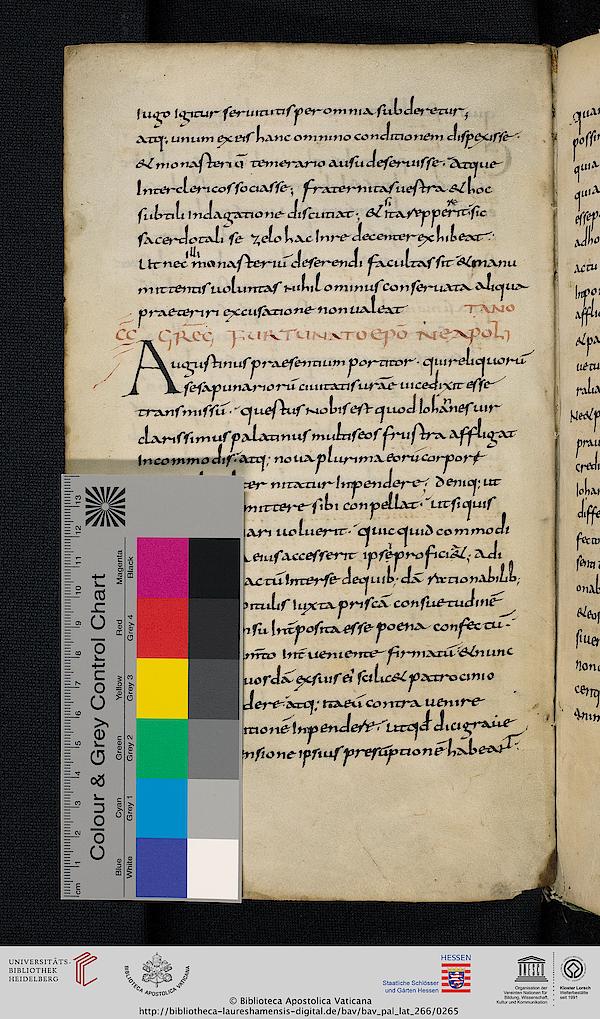 iugo igitur seruitutis per omnia subderetur,
atq; unum ex eis hanc omnino conditionem dispexisse.
& monasteriū temerario ausu deseruisse. Atque
inter clericos sociasse; fraternitas uestra & hoc
subtili indagatione discutiat; & si ita reppererit sic
sacerdotali se zelo hac in re decenter exhibeat.
Ut nec illi monasteriū deserendi facultas sit & manu
mittentis uoluntas nihilominus conseruata aliqua
praeteriri excusatione non ualeat
CC GREG FURTUNATO EPO NEAPOLI
TANO
Augustinus praesentium portitor. qui reliquorū
se saponariorū ciuitatis urae uice dixit esse
transmissū. questus nobis est quod iohannes uir
clarissimus palatinus multis eos frustra affligat
incommodis. atq; noua plurima eorū corpori
ter nitatur inpendere. Deniq; ut
mittere sibi conpellat. ut si quis
ari uoluerit. quicquid commodi
eius accesserit ipse proficiat. adi
actū inter se de quib;dā rationabilib;
pitulis iuxta priscā consuetudinē
su interposita esse poena confectū.
mto int ueniente firmatū & nunc
uosdā ex suis ei scilic& patrocinio
dere. atq; ita eū contra uenire
tionē inpendere. ut qd dici graue
nsione ipsius presūptionē habeat.
cm 1 2 3 4 5 6 7 8 9 10 11 12 13
Colour & Grey Control Chart
Blue Cyan Green Yellow Red Magenta
White Grey 1 Grey 2 Grey 3 Grey 4 Black
UNIVERSITÄTS-
BIBLIOTHEK
HEIDELBERG
BIBLIOTECA APOSTOLICA VATICANA
HESSEN
Staatliche Schlösser
und Gärten Hessen
Organisation der
Vereinten Nationen für
Bildung, Wissenschaft,
Kultur und Kommunikation
Kloster Lorsch
Welterbestätte
seit 1991
© Biblioteca Apostolica Vaticana
http://bibliotheca-laureshamensis-digital.de/bav/bav_pal_lat_266/0265